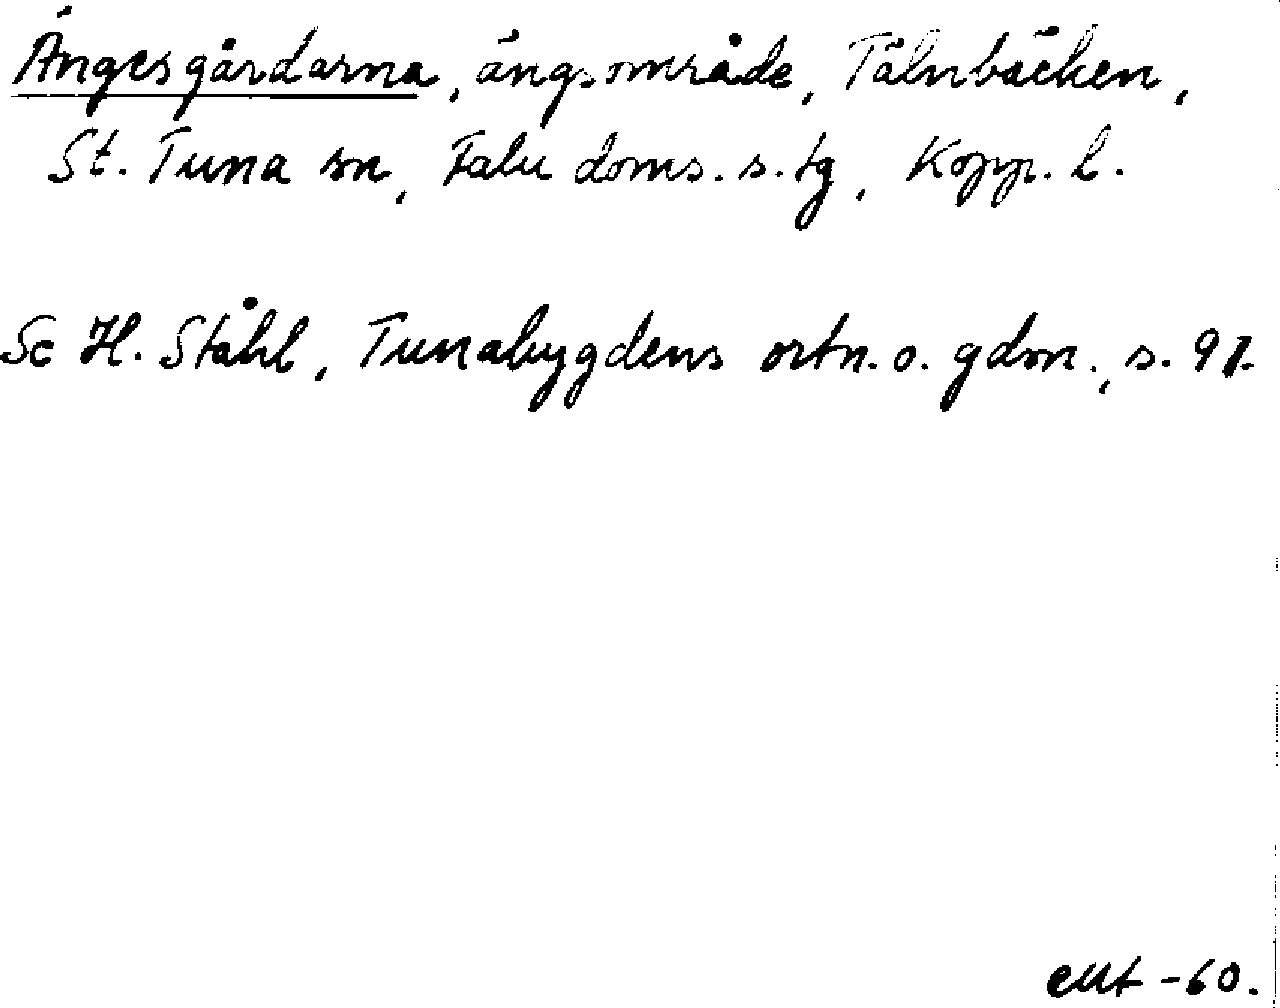 Ängesgårdarna, ängsområde, Tälnbäcken,
St. Tuna sn, Falu doms. s. tg, Kopp. l.
Se H. Ståhl, Tunabygdens ortn. o. gdsn., s. 97.
-60.